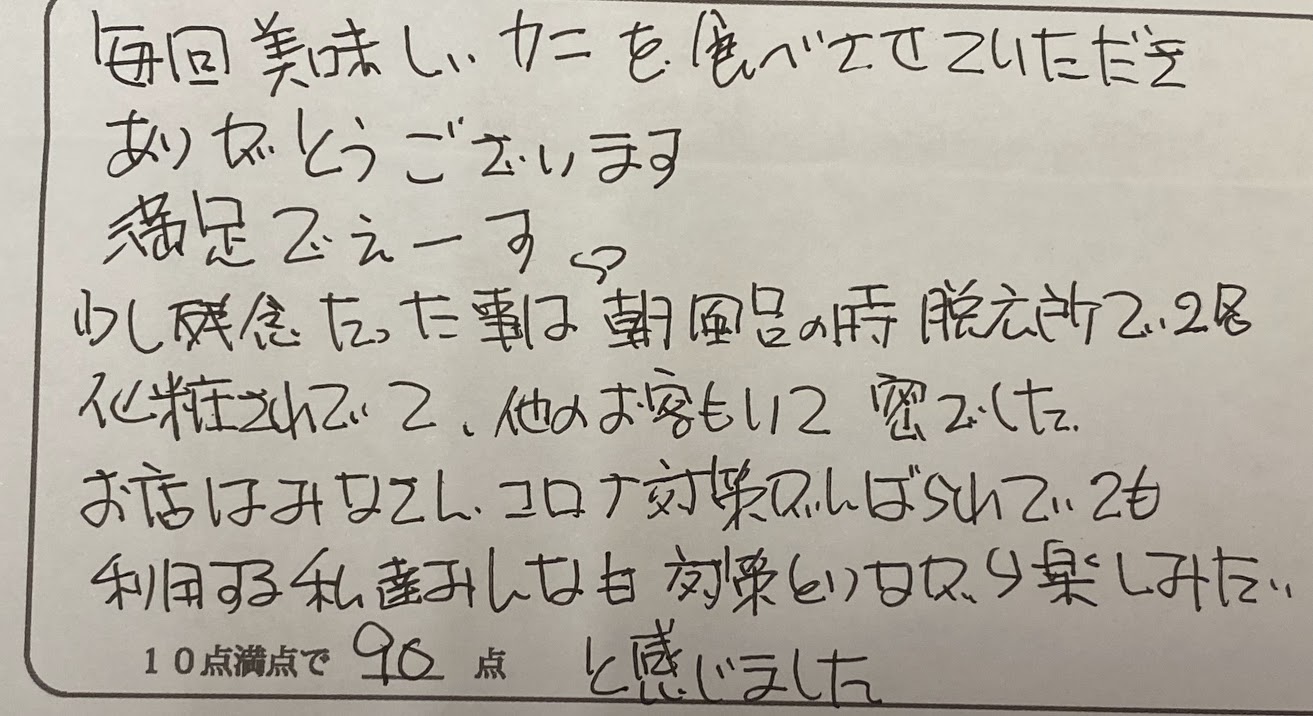 毎回美味しいカニを食べさせていただき
ありがとうございます
満足でぇーす
少し残念だった事は朝風呂の時脱衣所で2名
化粧されていて、他のお客もいて密でした。
お店はみなさん、コロナ対策がんばられていても
利用する私達みんなも対策をしながら楽しみたい
10点満点で 90 点 と感じました